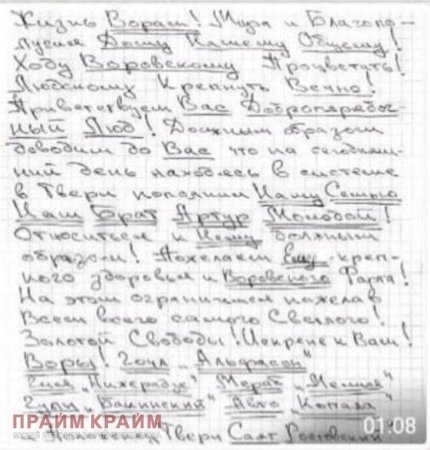 Жизнь Ворам! Мира и Благопо-
лучия Дому Нашему Общему!
Ходу Воровскому Процветать!
Людскому Крепнуть Вечно!
Приветствуем Вас Добропорядоч-
ный Люд! Должным образом
доводим до Вас что на сегодняш-
ний день находясь в системе
в Твери пополнил Нашу Семью
Наш Брат Артур Молодой!
Относиться к Нему должным
образом! Пожелаем Ему креп-
кого здоровья и Воровского Фарта!
На этом ограничимся пожелав
Всем всего самого Светлого!
Золотой Свободы! Искренне к Вам!
Воры! "Альфасон"
Мераб
"Бакинский" Авто "Копала"
ПРАЙМ КРАЙМ
01:08
Твери Саят Ростовский